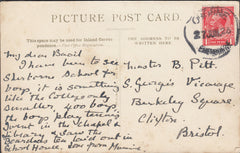 PICTURE POST CARD.
This space may be used for Inland Correspondence
THE ADDRESS TO BE
WRITTEN HERE
My dear Basil
I have been to see
Sherborne School for
boys, it is something
like the College only
smaller, 400 boys,
the boys play tennis
Went in the Chapel &
Library. Saw the
tea laid out in
School House, love from Mummie
Master B. Pitt
S. George's Vicarage
Berkeley Square
Clifton.
Bristol.